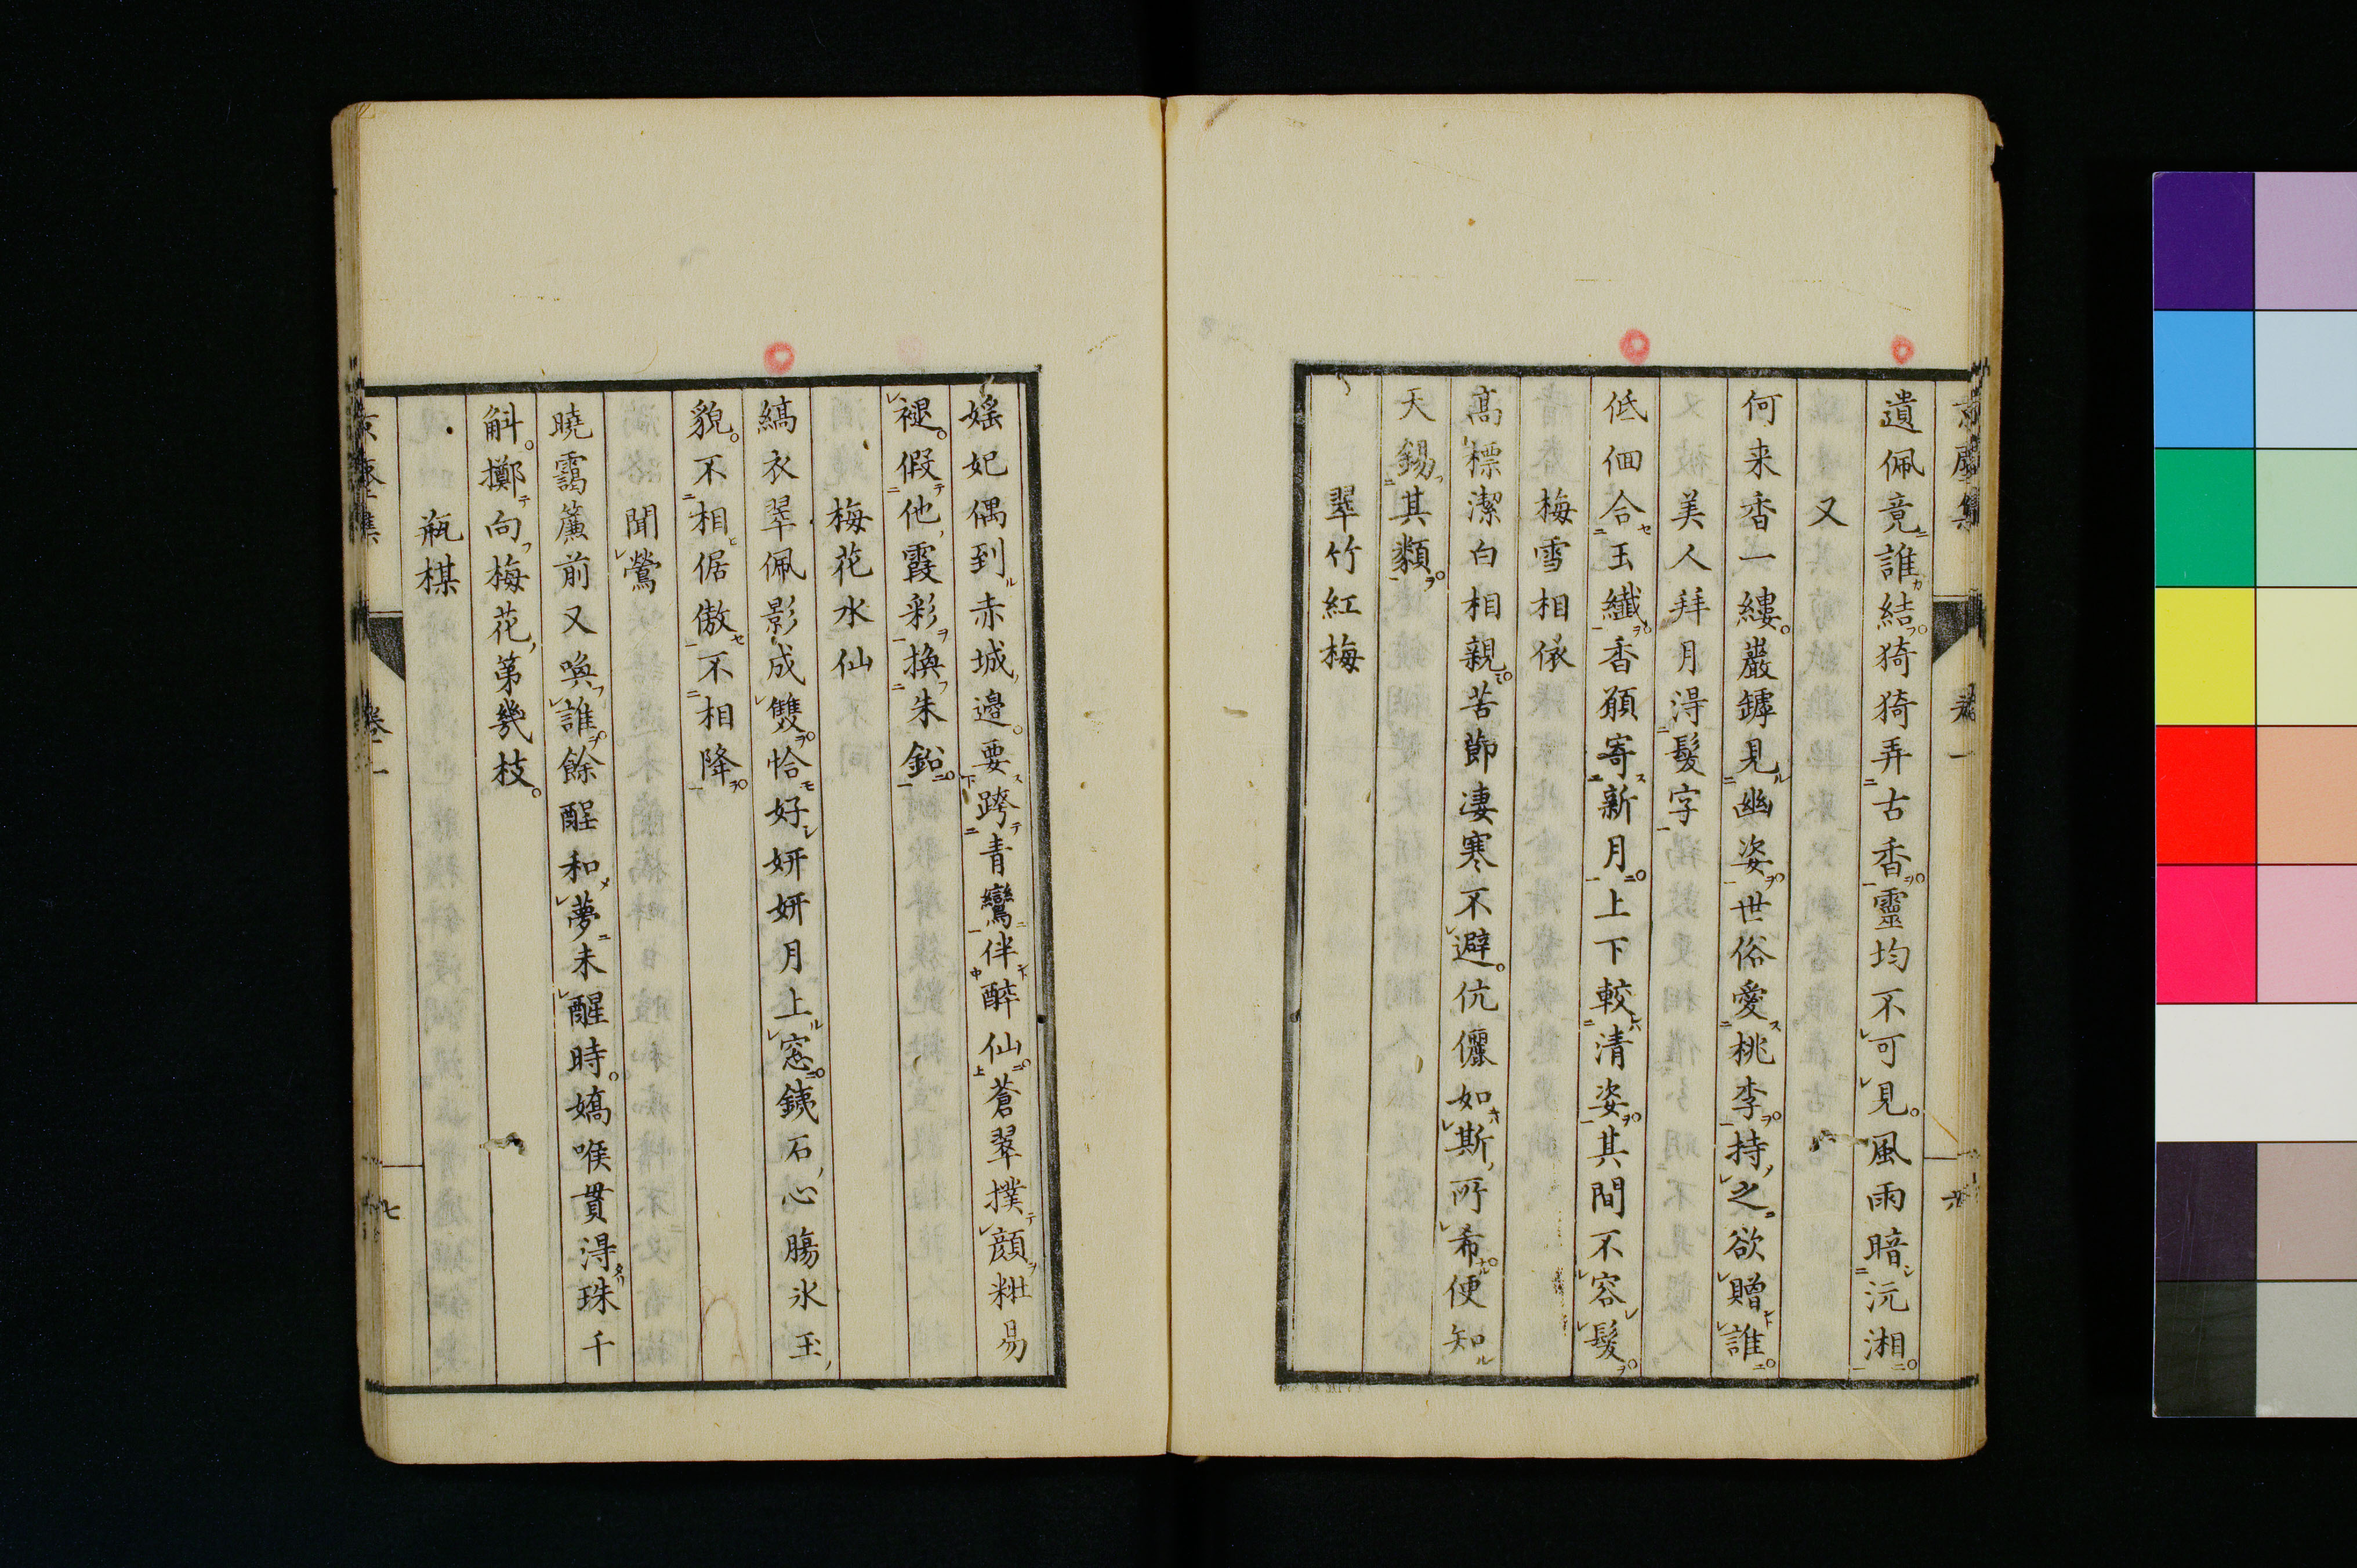 遺佩竟誰結猗猗弄古香靈均不可見風雨暗沅湘
又
何来香一縷巖罅見幽姿世俗愛桃李持之欲贈誰
美人拜月得髮字
低佪合玉纖香願寄新月上下較清姿其間不容髮
梅雪相依
高標潔白相親苦節凄寒不避伉儷如斯所希便知
天錫其類
翠竹紅梅
媱妃偶到赤城邊要跨青鸞伴醉仙蒼翠撲顔粧易
褪假他霞彩換朱鉛
梅花水仙
縞衣翠佩影成雙恰好妍妍月上窓銕石心膓氷玉
貌不相倨傲不相降
聞鶯
曉靄簾前又喚誰餘酲和夢未醒時嬌喉貫得珠千
斛擲向梅花第幾枝
瓶棋
卷一
七